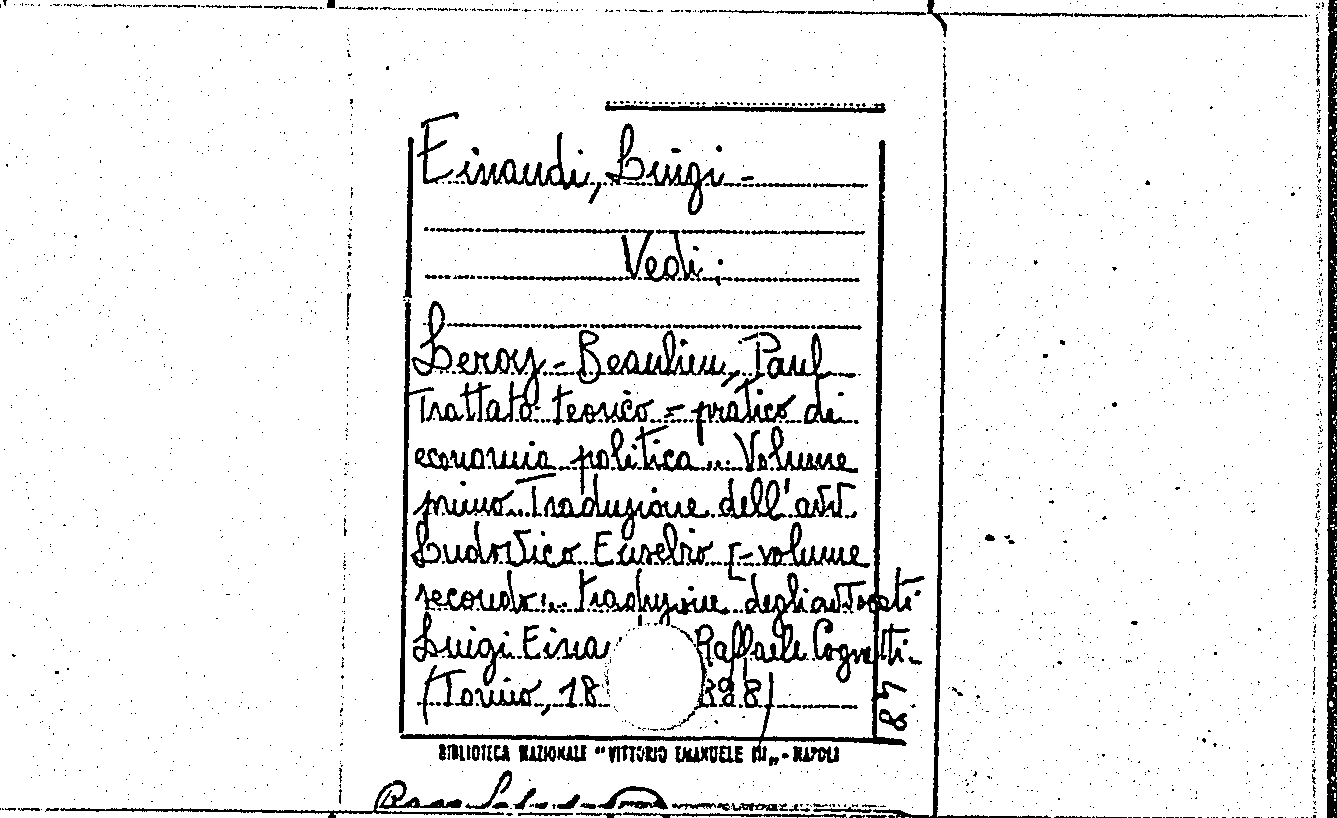 Einaudi, Luigi -
Vedi:
Leroy - Beaulieu, Paul
Trattato teorico = pratico di
economia politica ... Volume
primo. Traduzione dell'avv.
Ludovico Eusebio [- volume
secondo ... traduzione degli avvocati
Luigi Eina Raffaele Cognetti -
(Torino, 18 898)
BIBLIOTECA NAZIONALE "VITTORIO EMANUELE III" - NAPOLI